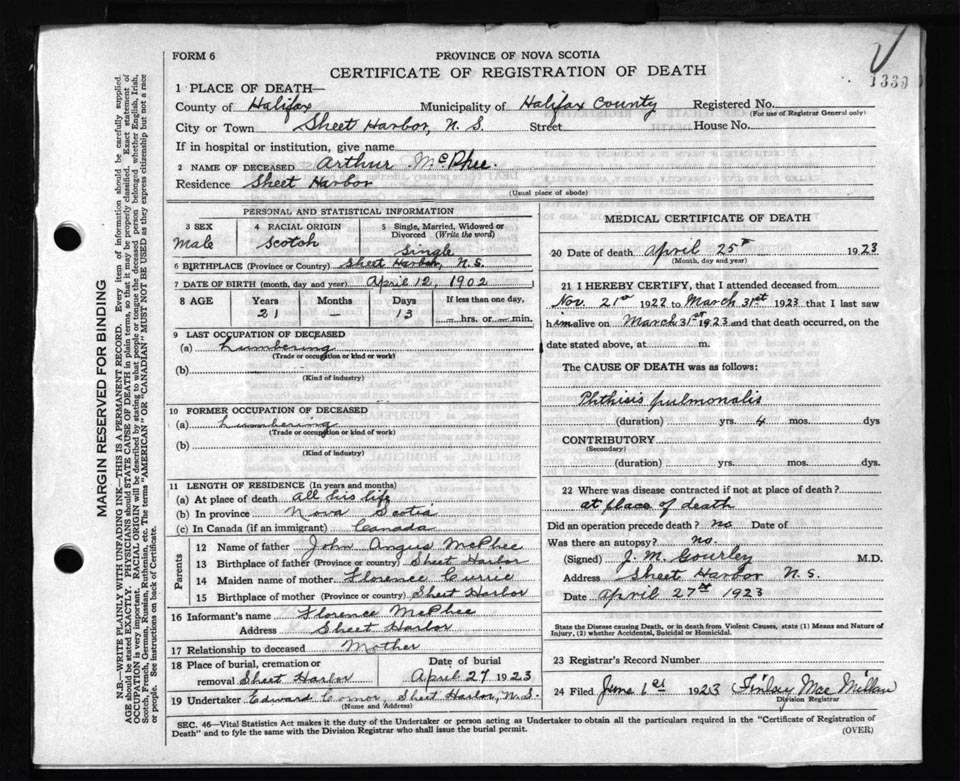 1339
FORM 6
PROVINCE OF NOVA SCOTIA
CERTIFICATE OF REGISTRATION OF DEATH
1 PLACE OF DEATH—
County of Halifax Municipality of Halifax County Registered No.
(For use of Registrar General only)
City or Town Sheet Harbor, N. S. Street House No.
If in hospital or institution, give name
2 NAME OF DECEASED Arthur McPhee.
Residence Sheet Harbor
(Usual place of abode)
PERSONAL AND STATISTICAL INFORMATION
3 SEX Male
4 RACIAL ORIGIN Scotch
5 Single, Married, Widowed or Divorced (Write the word) Single
6 BIRTHPLACE (Province or Country) Sheet Harbor, N.S.
7 DATE OF BIRTH (month, day and year) April 12, 1902
8 AGE Years Months Days If less than one day,
21 — 13 — hrs. or — min.
9 LAST OCCUPATION OF DECEASED
(a) Lumbering
(Trade or occupation or kind or work)
(b)
(Kind of industry)
10 FORMER OCCUPATION OF DECEASED
(a) Lumbering
(Trade or occupation or kind of work)
(b)
(Kind of industry)
11 LENGTH OF RESIDENCE (In years and months)
(a) At place of death all his life
(b) In province Nova Scotia
(c) In Canada (if an immigrant) Canada
Parents
12 Name of father John Angus McPhee
13 Birthplace of father (Province or Country) Sheet Harbor
14 Maiden name of mother Florence Currie
15 Birthplace of mother (Province or country) Sheet Harbor
16 Informant's name Florence McPhee
Address Sheet Harbor
17 Relationship to deceased Mother
18 Place of burial, cremation or removal Sheet Harbor
Date of burial April 27 1923
19 Undertaker Edward Connor, Sheet Harbor, N.S.
(Name and Address)
MEDICAL CERTIFICATE OF DEATH
20 Date of death April 25th 1923
(Month, day and year)
21 I HEREBY CERTIFY, that I attended deceased from
Nov. 21st 1922 to March 31st 1923 that I last saw
him alive on March 31st 1923 and that death occurred, on the
date stated above, at m.
The CAUSE OF DEATH was as follows:
Phthisis pulmonalis
(duration) yrs. 4 mos. dys
CONTRIBUTORY
(Secondary)
(duration) yrs. mos. dys.
22 Where was disease contracted if not at place of death?
at place of death
Did an operation precede death? no Date of
Was there an autopsy? no.
(Signed) J. M. Gourley M.D.
Address Sheet Harbor N. S.
Date April 27th 1923
State the Disease causing Death, or in death from Violent Causes, state (1) Means and Nature of
Injury, (2) whether Accidental, Suicidal or Homicidal.
23 Registrar's Record Number
24 Filed June 1st 1923 Finlay MacMillan
Division Registrar
SEC. 46—Vital Statistics Act makes it the duty of the Undertaker or person acting as Undertaker to obtain all the particulars required in the "Certificate of Registration of
Death" and to fyle the same with the Division Registrar who shall issue the burial permit.
(OVER)
MARGIN RESERVED FOR BINDING
N.B.—WRITE PLAINLY WITH UNFADING INK—THIS IS A PERMANENT RECORD. Every item of information should be carefully supplied.
AGE should be stated EXACTLY. PHYSICIANS should STATE CAUSE OF DEATH in plain terms, so that it may be properly classified. Exact statement of
OCCUPATION is very important. RACIAL ORIGIN will be described by stating to what people or tongue the deceased person belonged whether English, Irish,
Scotch, French, German, Russian, Ruthenian, etc. The terms "AMERICAN" OR "CANADIAN" MUST NOT BE USED as they express citizenship but not a race
or people. See instructions on back of Certificate.